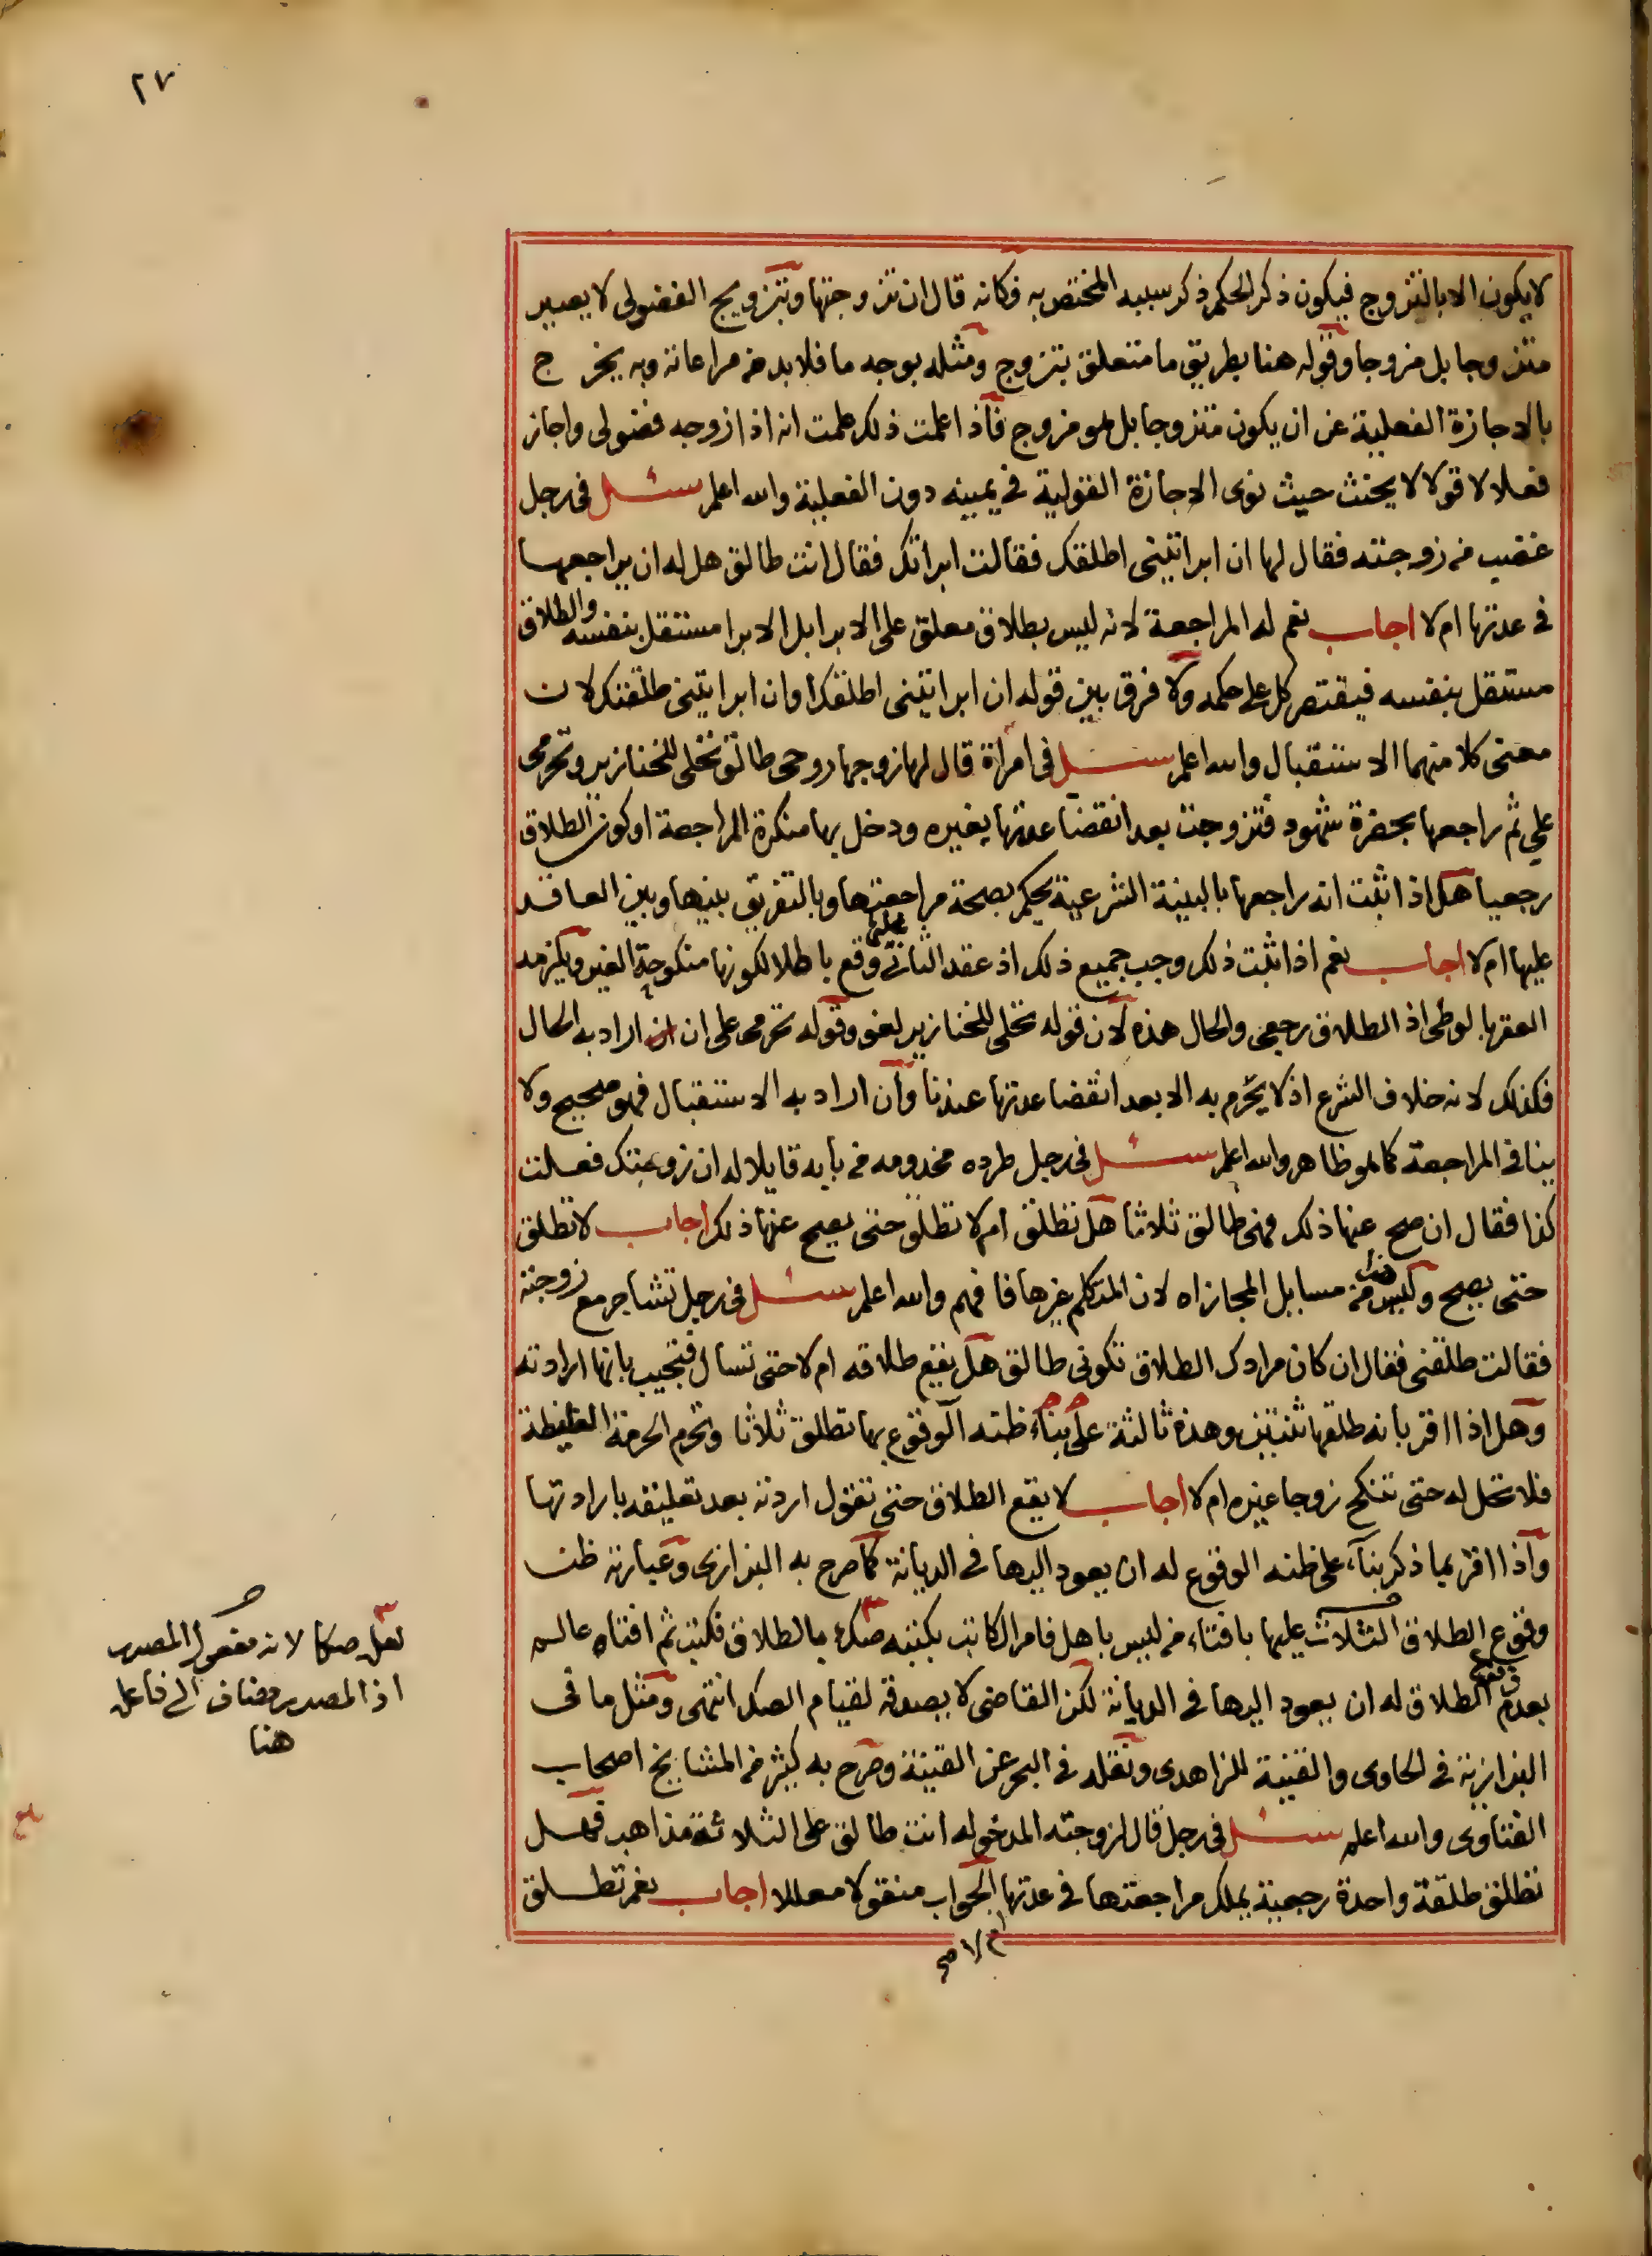 ٢٧
لا يكون الا بالتزوج فيكون ذكر الحكم ذكر سببه المختص به فكانه قال ان تزوجتها وبتزويج الفضولى لا يصير
متزوجا بل مزوجا وقوله هنا بطريق ما متعلق بتزوج ومثله بوجه ما فلا بد من مراعاته وبه يخرج
بالاجازة الفعلية عن ان يكون متزوجا بل هو مزوج فاذا علمت ذلك علمت انه اذا زوجه فضولى واجاز
فعلا لا قولا لا يحنث حيث نوى الاجازة القولية فى يمينه دون الفعلية والله اعلم سئل فى رجل
غضب من زوجته فقال لها ان ابراتينى اطلقك فقالت ابراتك فقال انت طالق هل له ان يراجعها
فى عدتها ام لا اجاب نعم له المراجعة لانه ليس بطلاق معلق على الابرا بل الابرا مستقل بنفسه والطلاق
مستقل بنفسه فيقتصر كل على حكمه ولا فرق بين قوله ان ابراتينى اطلقك او ان ابراتينى طلقتك لان
معنى كلا منهما الاستقبال والله اعلم سئل فى امراة قال لها زوجها روحى طالق تحلى للخنازير وتحرمى
على ثم راجعها بحضرة شهود فتزوجت بعد انقضا عدتها بغيره ودخل بها منكرة المراجعة او كون الطلاق
رجعيا هل اذا ثبت انه راجعها بالبينة الشرعية يحكم بصحة مراجعتها وبالتفريق بينها وبين العاقد
عليها ام لا اجاب نعم اذا ثبت ذلك وجب جميع ذلك اذ عقد الثانى عليها وقع باطلا لكونها منكوحة الغير ويلزمه
العقر بالوطى اذ الطلاق رجعى والحال هذه لان قوله تحلى للخنازير لغو وقوله تحرمى على ان اراد به الحال
فكذلك لانه خلاف الشرع اذ لا يحرم به الا بعد انقضا عدتها عندنا وان اراد به الاستقبال فهو صحيح ولا
ينافى المراجعة كما هو ظاهر والله اعلم سئل فى رجل طرده مخدومه من بابه قايلا له ان زوجتك فعلت
كذا فقال ان صح عنها ذلك فهى طالق ثلاثا هل تطلق ام لا تطلق حتى يصح عنها ذلك اجاب لا تطلق
حتى يصح وليست من مسايل المجازاه لان المتكلم غيرها فافهم والله اعلم سئل فى رجل تشاجر مع زوجته
فقالت طلقنى فقال ان كان مرادك الطلاق تكونى طالق هل يقع طلاقه ام لا حتى تسال فتجيب بانها ارادته
وهل اذا اقر بانه طلقها ثنتين وهذه ثالثة على بناء ظنه الوقوع بها تطلق ثلاثا وتحرم الحرمة الغليظة
فلا تحل له حتى تنكح زوجا غيره ام لا اجاب لا يقع الطلاق حتى تقول اردته بعد تعليقه بارادتها
واذا اقر بما ذكر بناء على ظنه الوقوع له ان يعود اليها فى الديانة كما صرح به البزازى وعبارته ظن
وقوع الطلاق الثلاث عليها بافتاء من ليس باهل فامر الكاتب بكتبه صك بالطلاق فكتب ثم افتاه عالم
بعدم وقوع الطلاق له ان يعود اليها فى الديانة لكن القاضى لا يصدقه لقيام الصك انتهى ومثل ما فى
البزازية فى الحاوى والقنية للزاهدى ونقله فى البحر عن القنية وصرح به كثير من المشايخ اصحاب
الفتاوى والله اعلم سئل فى رجل قال لزوجته المدخوله انت طالق على الثلاثة مذاهب فهل
تطلق طلقة واحدة رجعية يملك مراجعتها فى عدتها الجواب منقولا معللا اجاب نعم تطلق
ام لا صح
لعل صكا لانه مفعول المصدر
اذ المصدر مضاف الى فاعله
هنا